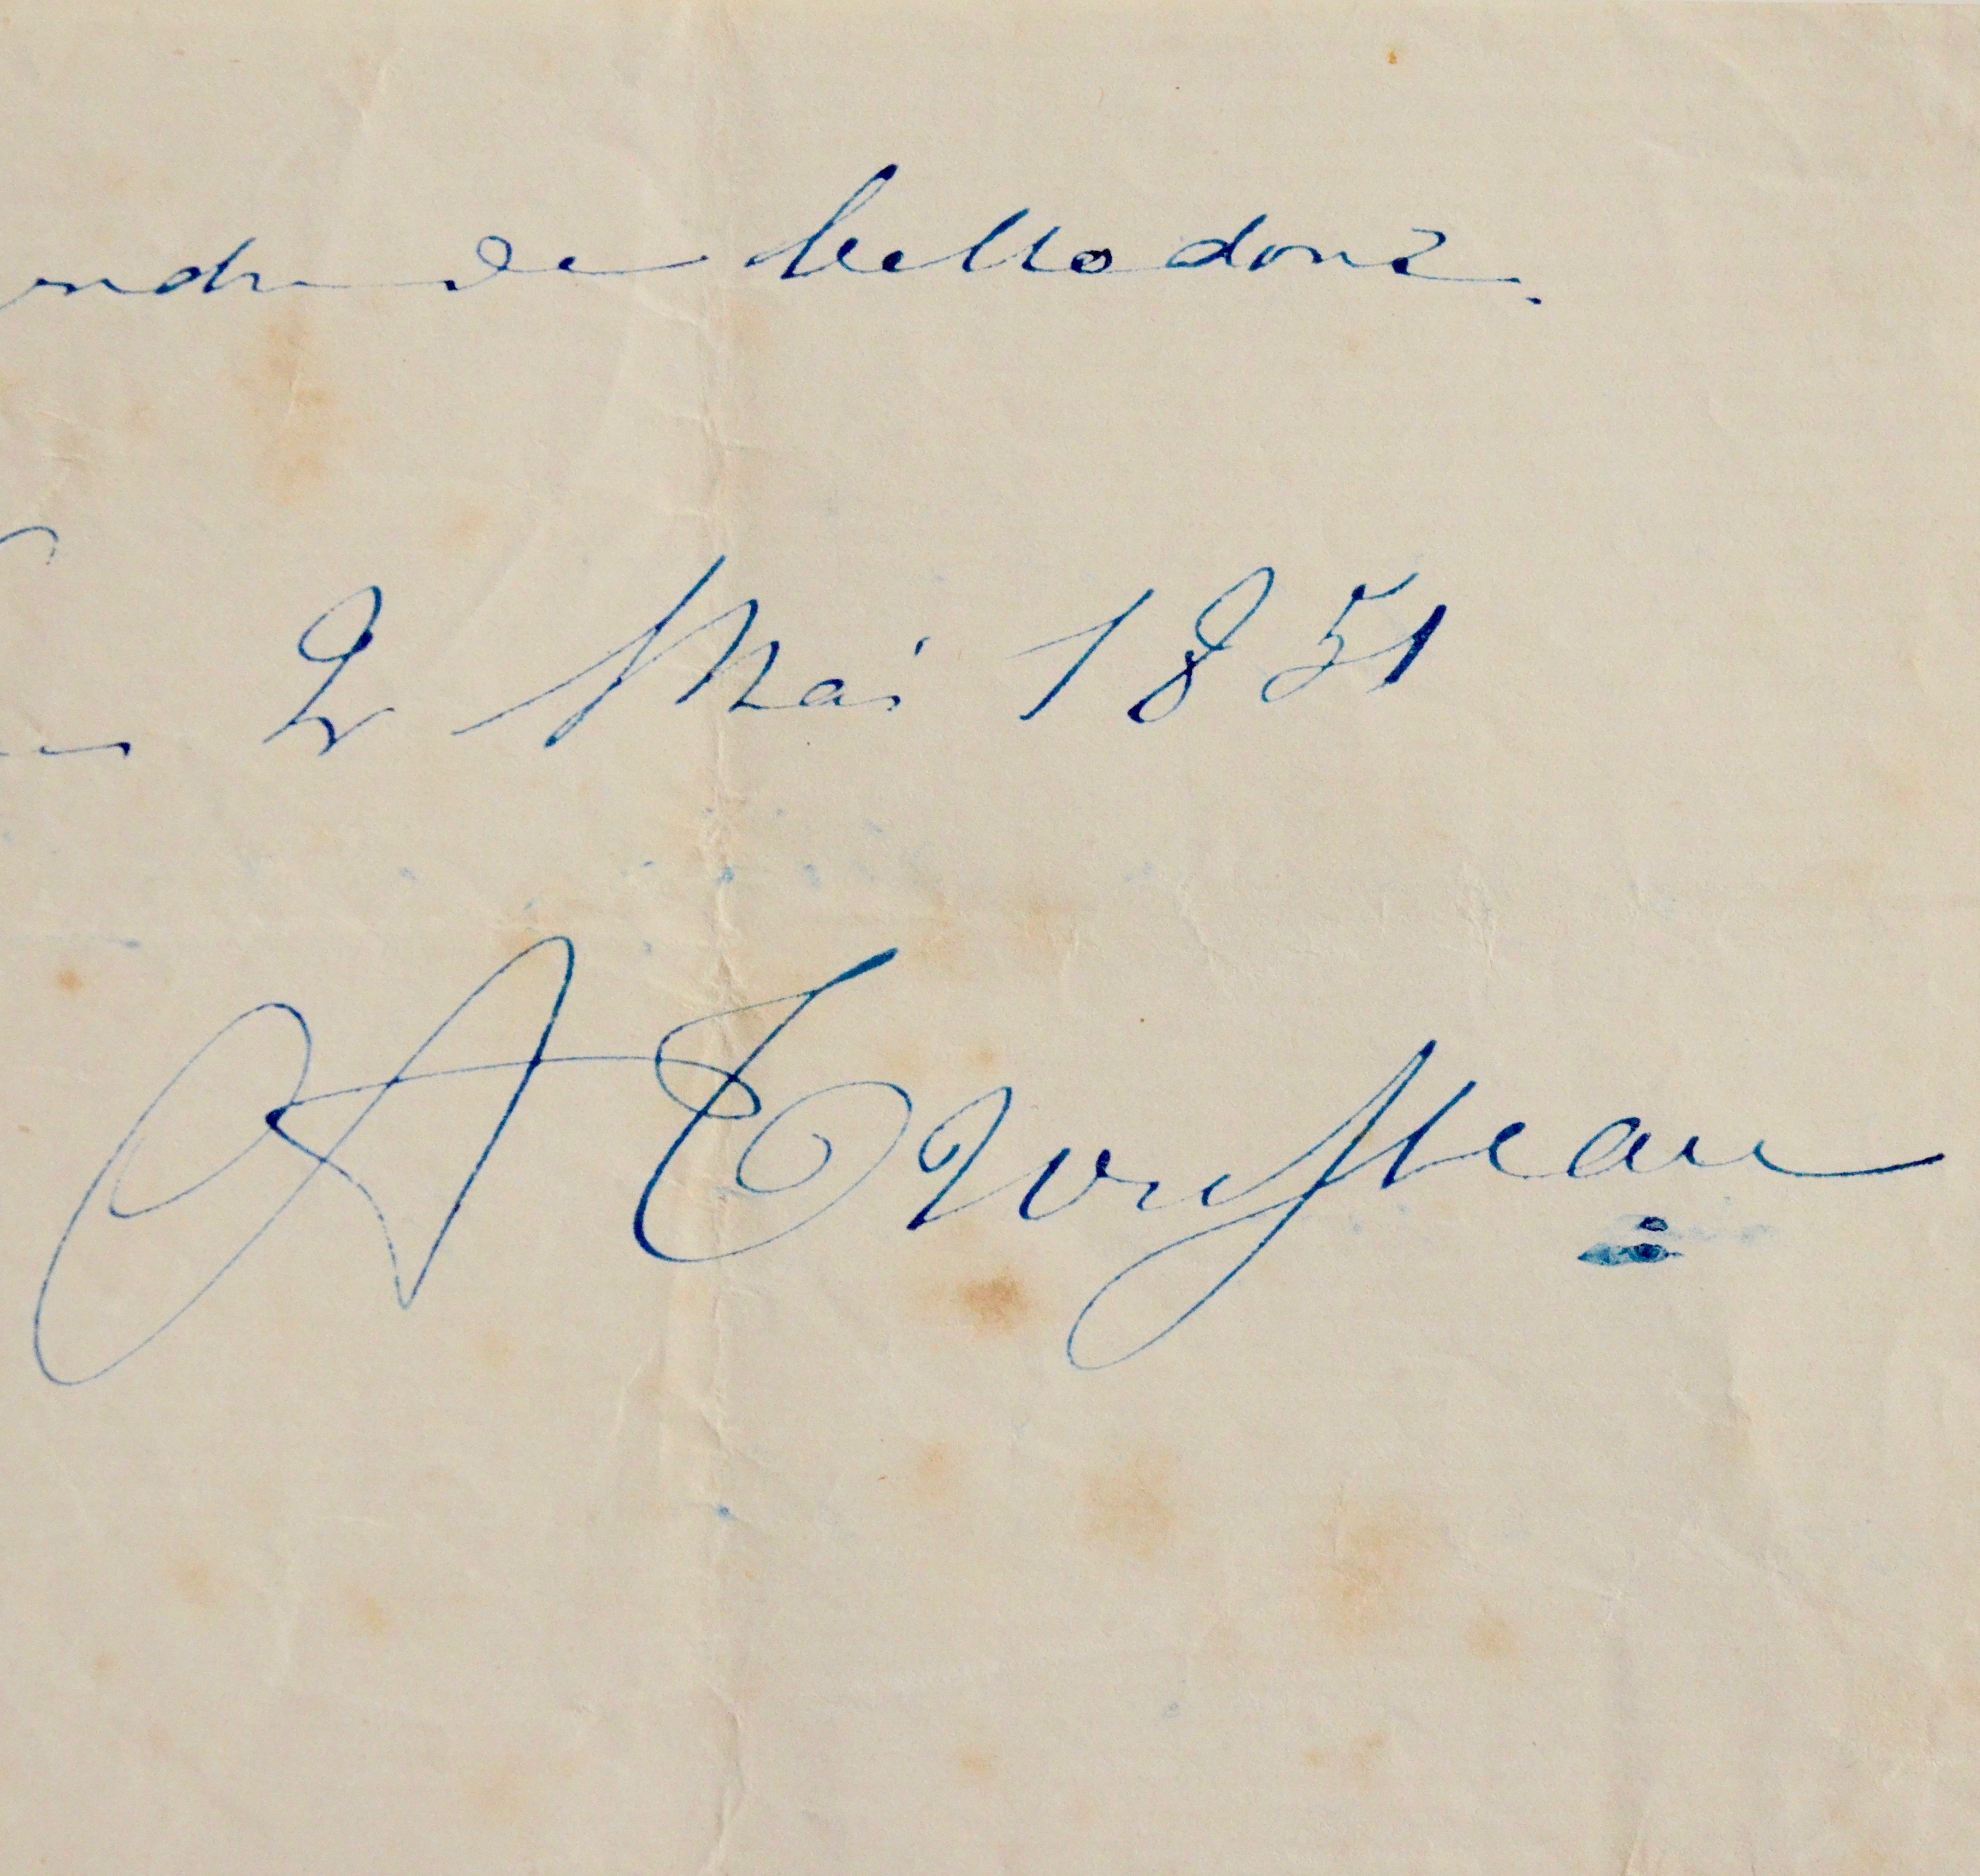 de belladone.
2 Mai 1851
A Trousseau